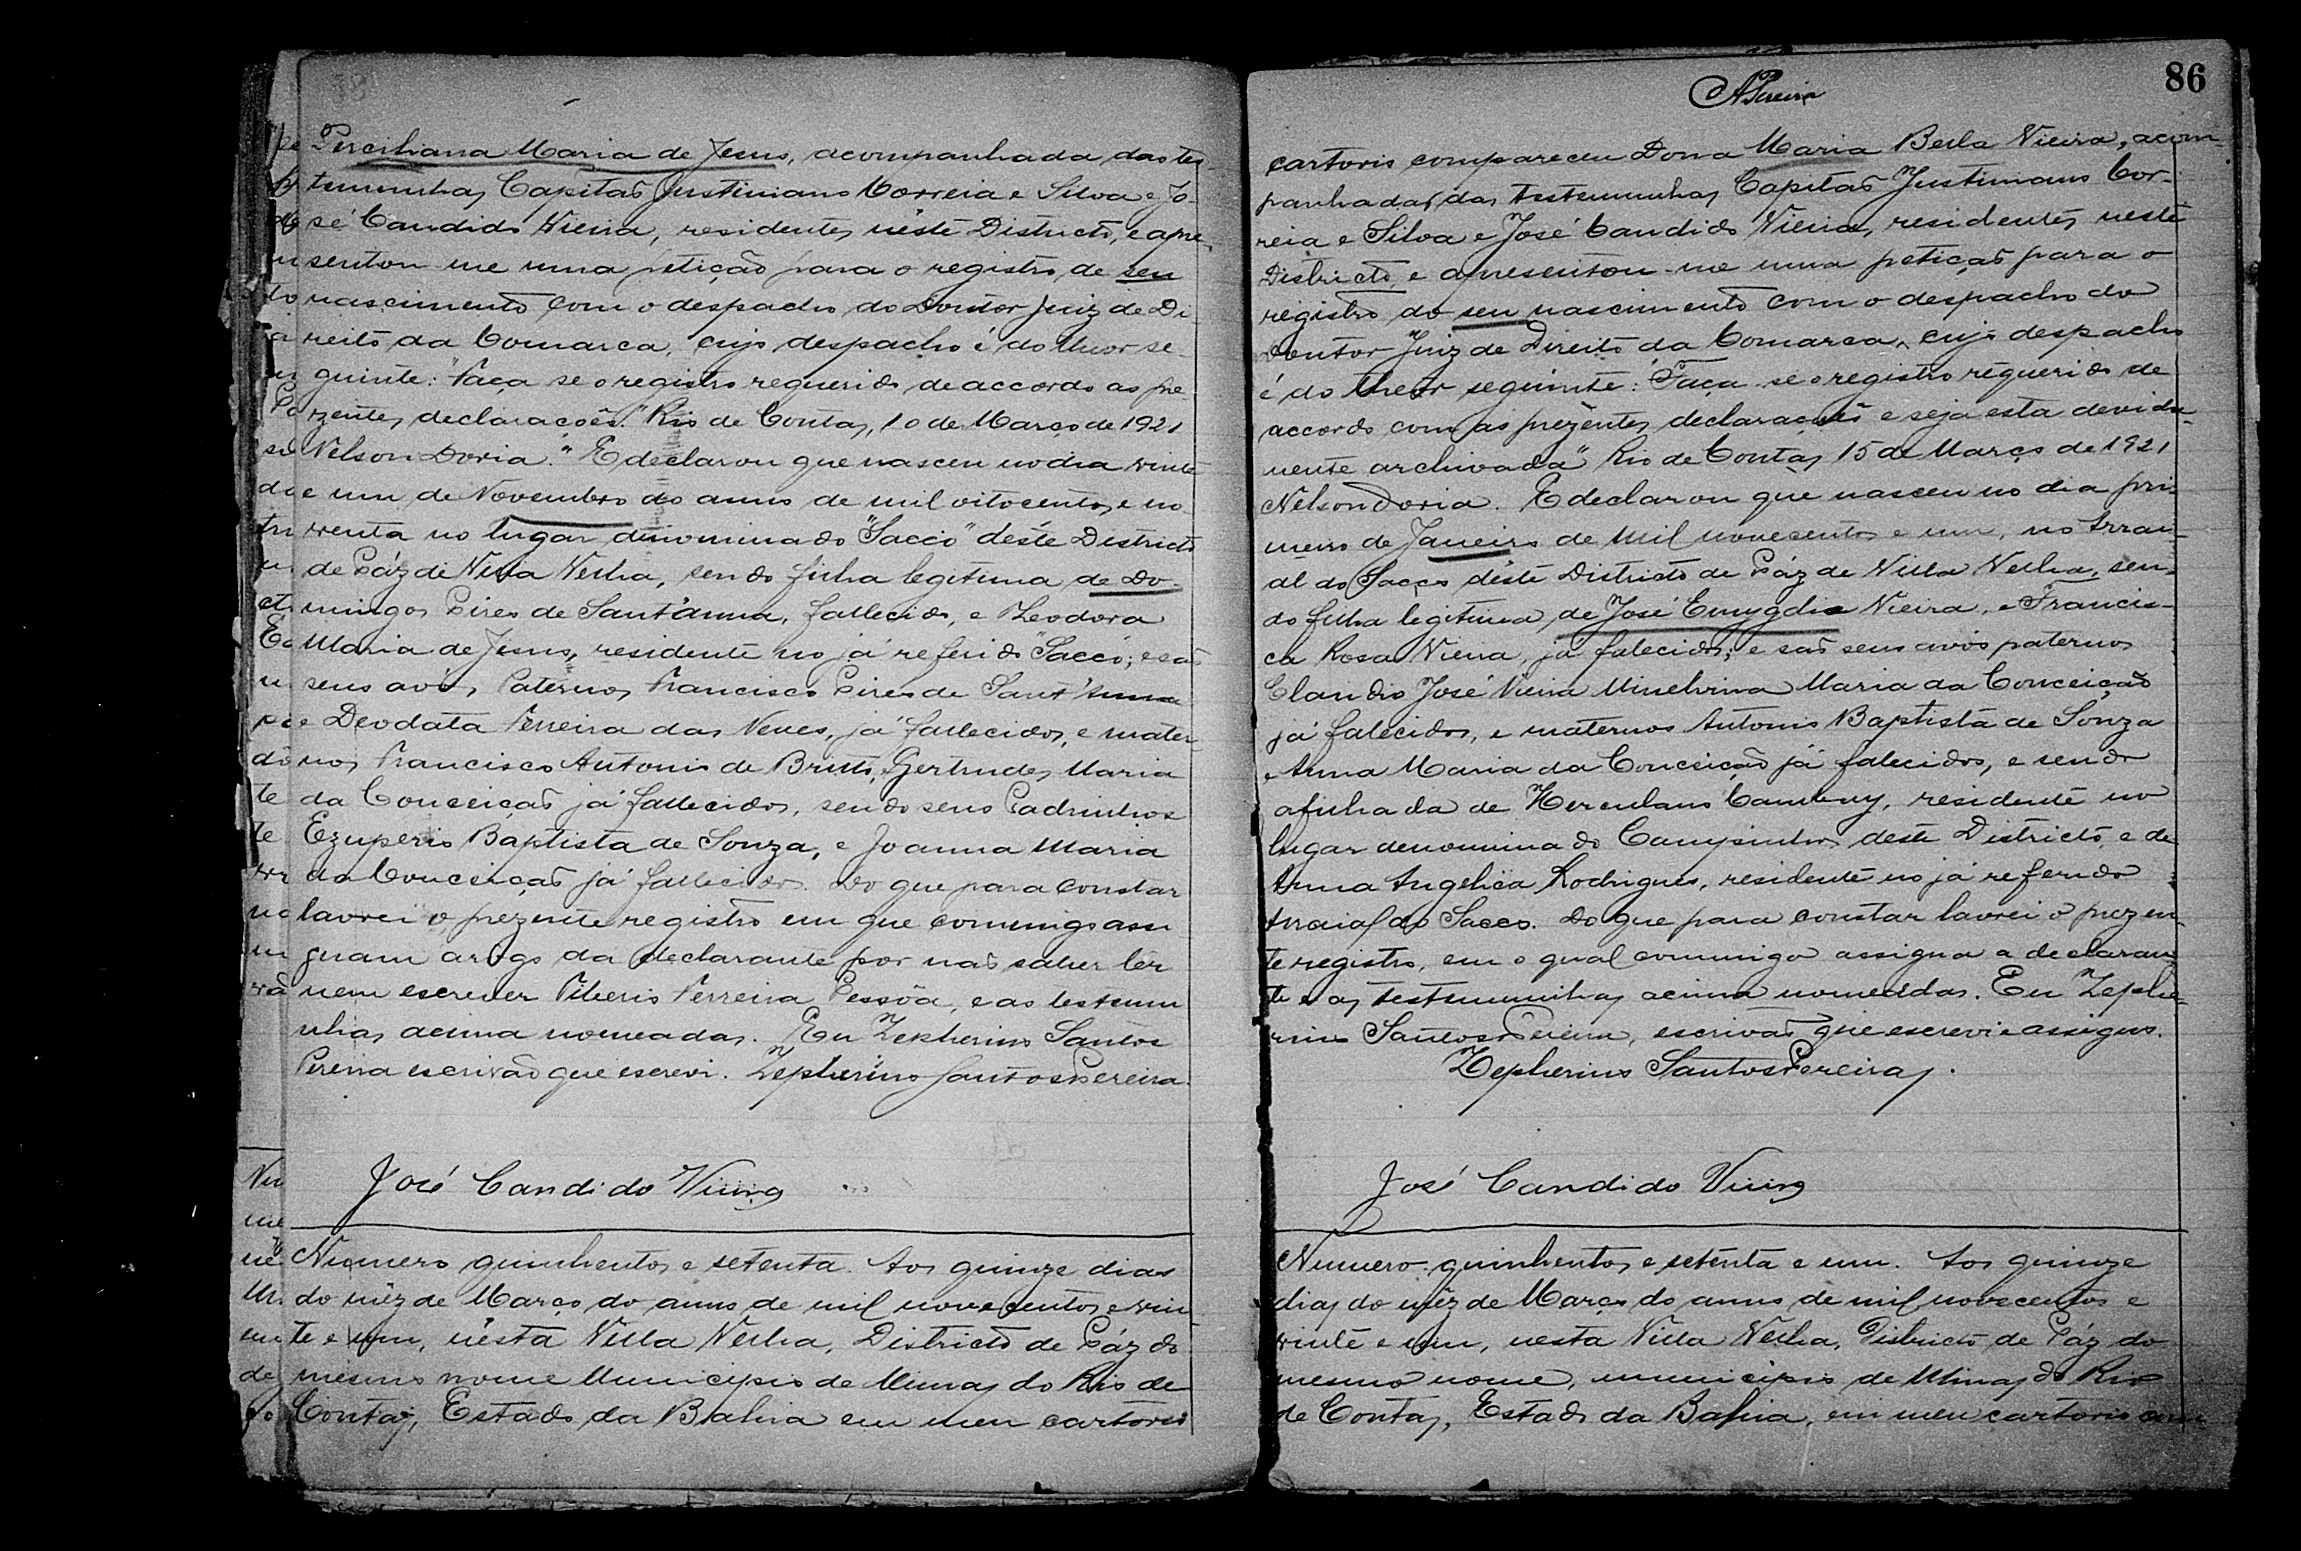 Perciliana Maria de Jesus, acompanhada das tes-
temunhas Capitaõ Justiniano Correia e Silva e Jo-
sé Candido Vieira, residentes nêste Districto, e apre-
sentou me uma petição para o registro de seu
nascimento com o despacho do Doutor Juiz de Di-
reito da Comarca, cujo despacho é do theor se-
guinte: "Faça se o registro requerido de accordo as pre-
zentes declarações." Rio de Contas, 10 de Março de 1921
Nelson Doria." E declarou que nasceu no dia vinte
e um de Novembro do anno de mil oitocentos e no-
venta no lugar dinominado "Sacco" deste Districto
de Páz de Villa Velha, sendo filha legitima de Do-
mingos Pires de Sant'anna, fallecido, e Theodora
Maria de Jesus, residente no já referido "Sacco"; e saõ
seus avós Paternos Francisco Pires de Sant'Anna
e Deodata Ferreira das Neves, já fallecidos, e mater-
nos Francisco Antonio de Britto, Gertrudes Maria
da Conceiçaõ já fallecidos, sendo seus Padrinhos
Ezuperio Baptista de Souza, e Joanna Maria
da Conceiçaõ já fallecidos. Do que para constar
lavrei o prezente registro em que commigo assi
gnam arogo da declarante por naõ saber lêr
nem escrever Tiberio Ferreira Pessôa, e as testemu
nhas acima nomeadas. Eu Zepherino Santos
Pereira escrivão que escrevi. Zepherino Santos Pereira.
José Candido Vieira
Numero quinhentos e setenta. Aos quinze dias
do mêz de Março do anno de mil novecentos e vin
te e um, nésta Villa Velha, Districto de Páz do
mesmo nome Municipio de Minas do Rio de
Contas, Estado da Bahia em meu cartorio
APereira
86
cartorio compareceu Dona Maria Bella Vieira, acom-
panhada das testemunhas Capitaõ Justiniano Cor-
reia e Silva e José Candido Vieira, residentes neste
Districto, e apresentou-me uma petiçaõ para o
registro do seu nascimento com o despacho do
Doutor Juiz de Direito da Comarca, cujo despacho
é do theor seguinte: "Faça-se o registro requerido de
accordo com as prezentes declarações e seja esta devida-
mente archivada" Rio de Contas 15 de Março de 1921
Nelson Doria. E declarou que nasceu no dia pri-
meiro de Janeiro de mil novecentos e um, no Arrai-
al do Sacco dêste Districto de Páz de Villa Velha, sen-
do filha legitima de José Emygdio Vieira, e Francis-
ca Rosa Vieira, já falecidos; e saõ seus avós paternos
Claudio José Vieira Minelvina Maria da Conceição
já falecidos, e maternos Antonio Baptista de Souza
e Anna Maria da Conceição já falecidos, e sendo
afilhada de Herculano, residente no
lugar denominado Campinhos deste Districto, e de
Anna Angelica Rodrigues, residente no já referido
Arraial do Sacco. Do que para constar lavrei o prezen-
te registro, em o qual commigo assigna a declaran-
te e as testemunhas acima nomeadas. Eu Zephe-
rino Santos Pereira, escrivaõ que escrevi e assigno.
Zepherino Santos Pereira.
José Candido Vieira
Numero quinhentos e setenta e um. Aos quinze
dias do mêz de Março do anno de mil novecentos e
vinte e um, nesta Villa Velha, Districto de Páz do
mesmo nome, municipio de Minas do Rio
de Contas, Estado da Bahia, em meu cartorio com-